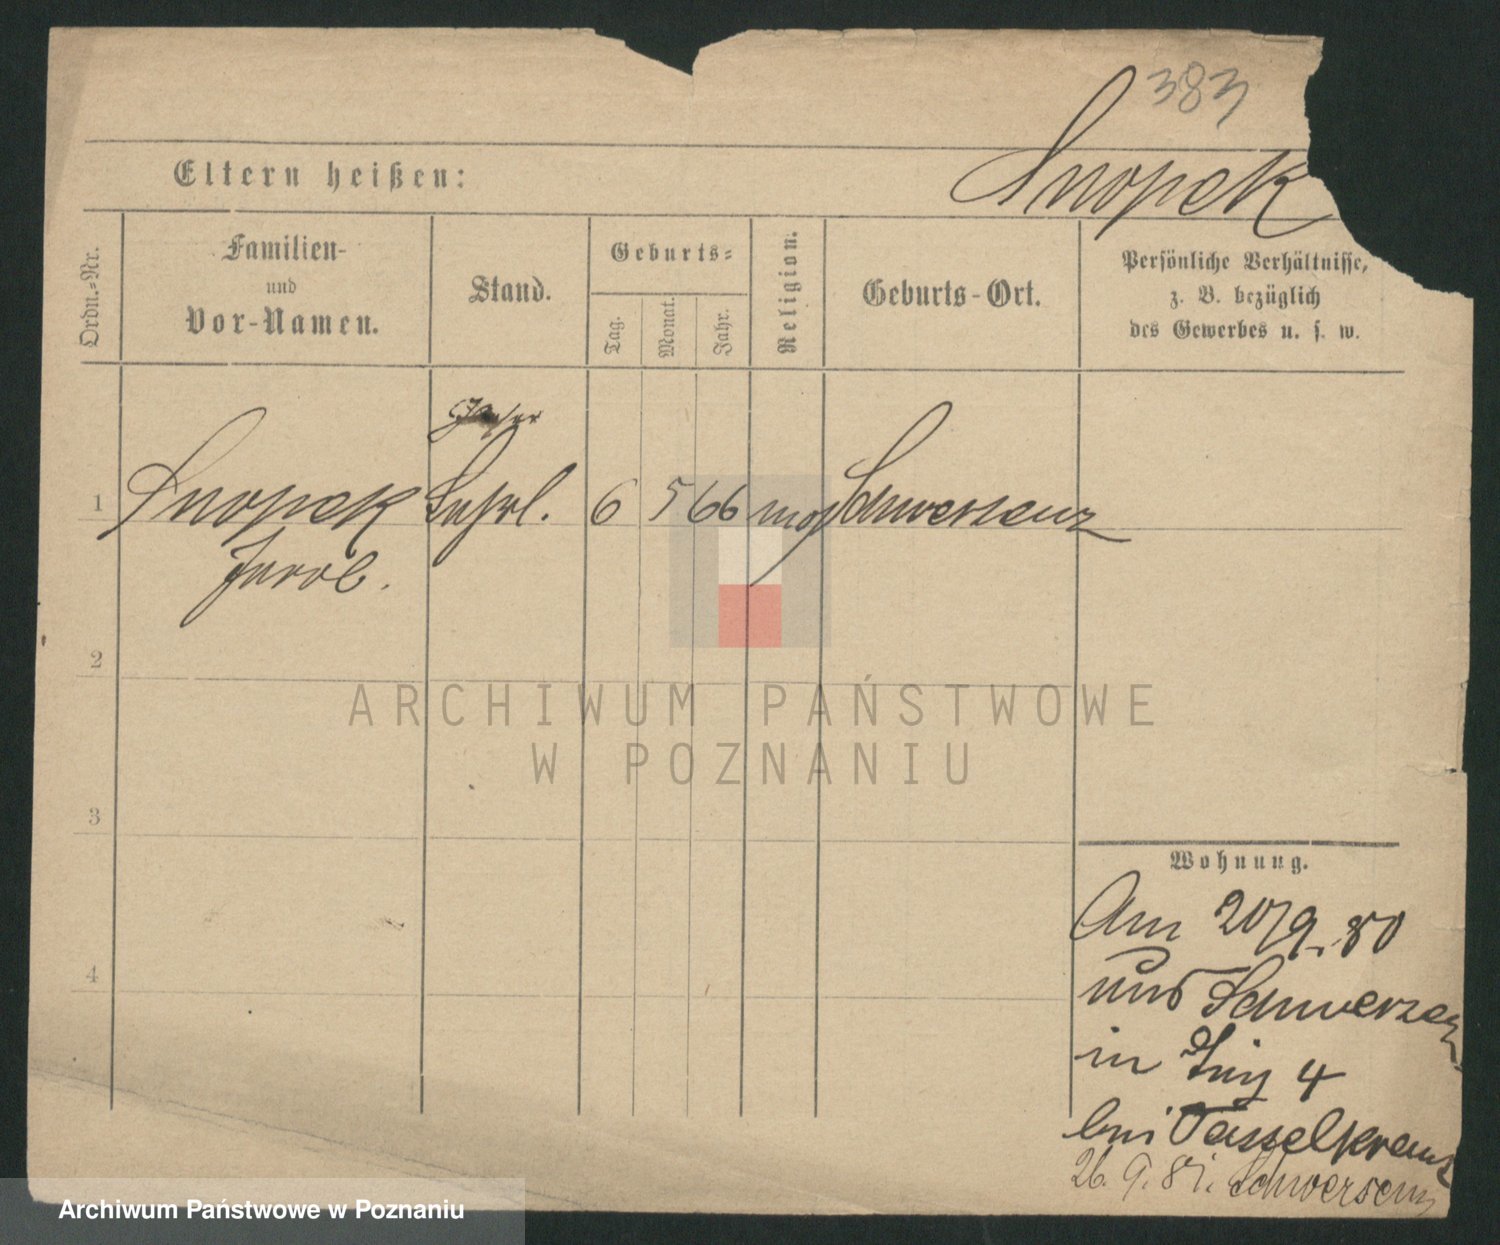 383
Snopek
Eltern heißen:
Ordn.-Nr.
Familien-
und
Vor-Namen.
Stand.
Geburts-
Tag.
Monat.
Jahr.
Religion.
Geburts-Ort.
Persönliche Verhältnisse,
z. B. bezüglich
des Gewerbes u. s. w.
1
Snopek
Jacob.
Lehrl.
6
5
66
mos
Schwersenz
2
3
4
Wohnung.
Am 20/9. 80
aus Schwerzenz
in 4
bei
26. 9. 81. Schwersenz
ARCHIWUM PAŃSTWOWE
W POZNANIU
Archiwum Państwowe w Poznaniu